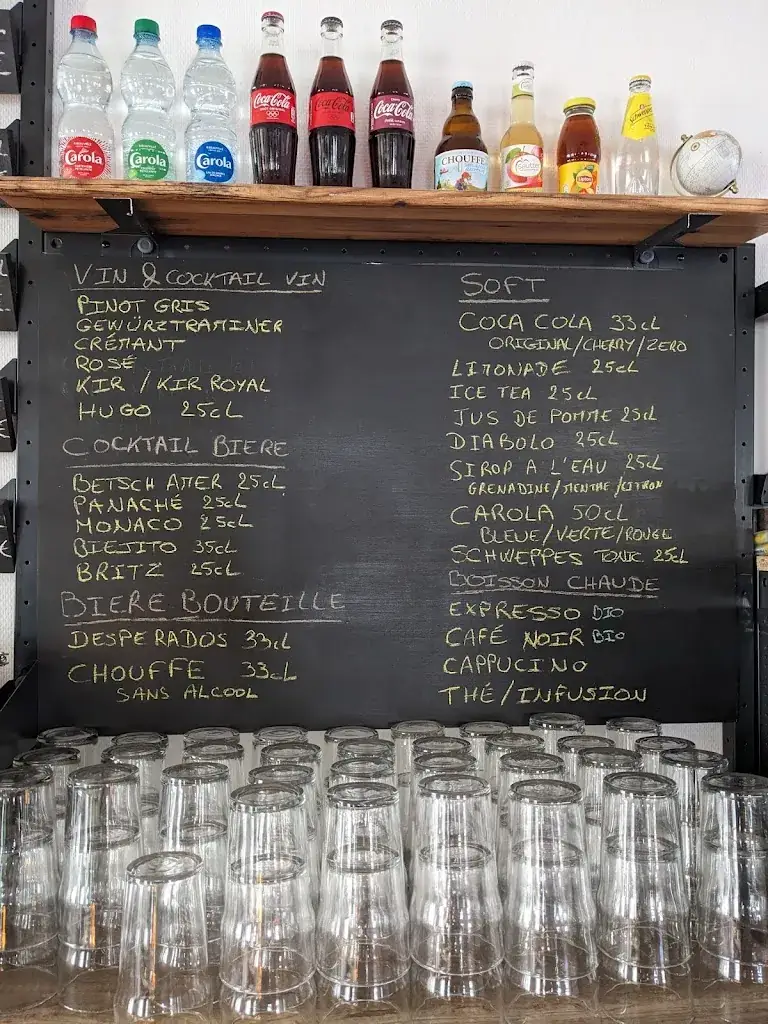 Carola
Carola
Carola
Coca-Cola
Coca-Cola
Coca-Cola
CHOUFFE
Lipton
Schweppes
VIN & COCKTAIL VIN
PINOT GRIS
GEWÜRZTRAMINER
CRÉMANT
ROSÉ
KIR / KIR ROYAL
HUGO 25cL
COCKTAIL BIERE
BETSCH AMER 25cL
PANACHÉ 25cL
MONACO 25cL
BIEJITO 35cL
BRITZ 25cL
BIERE BOUTEILLE
DESPERADOS 33cL
CHOUFFE 33cL
SANS ALCOOL
SOFT
COCA COLA 33cL
ORIGINAL/CHERRY/ZERO
LIMONADE 25cL
ICE TEA 25cL
JUS DE POMME 25cL
DIABOLO 25cL
SIROP A L'EAU 25cL
GRENADINE/MENTHE/CITRON
CAROLA 50cL
BLEUE/VERTE/ROUGE
SCHWEPPES TONIC 25cL
BOISSON CHAUDE
EXPRESSO BIO
CAFÉ NOIR BIO
CAPPUCINO
THÉ/INFUSION